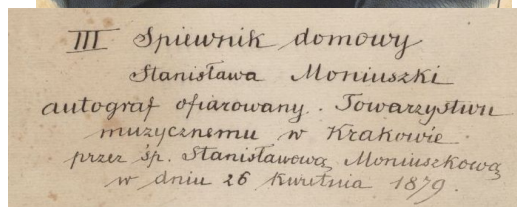 III Spiewnik domowy
Stanisława Moniuszki
autograf ofiarowany. Towarzystwu
muzycznemu w Krakowie
przez śp. Stanisławową Moniuszkową
w dniu 26 Kwietnia 1879.